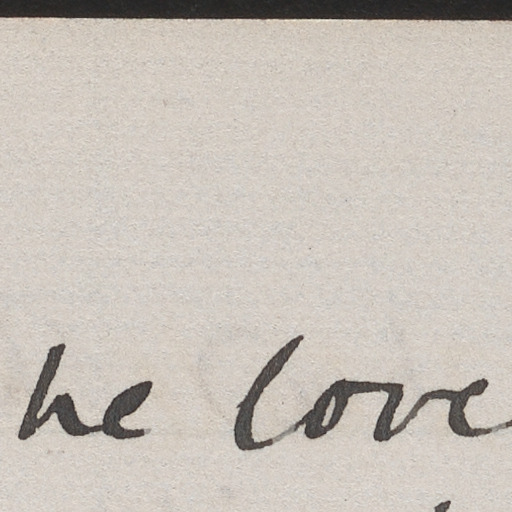 he love